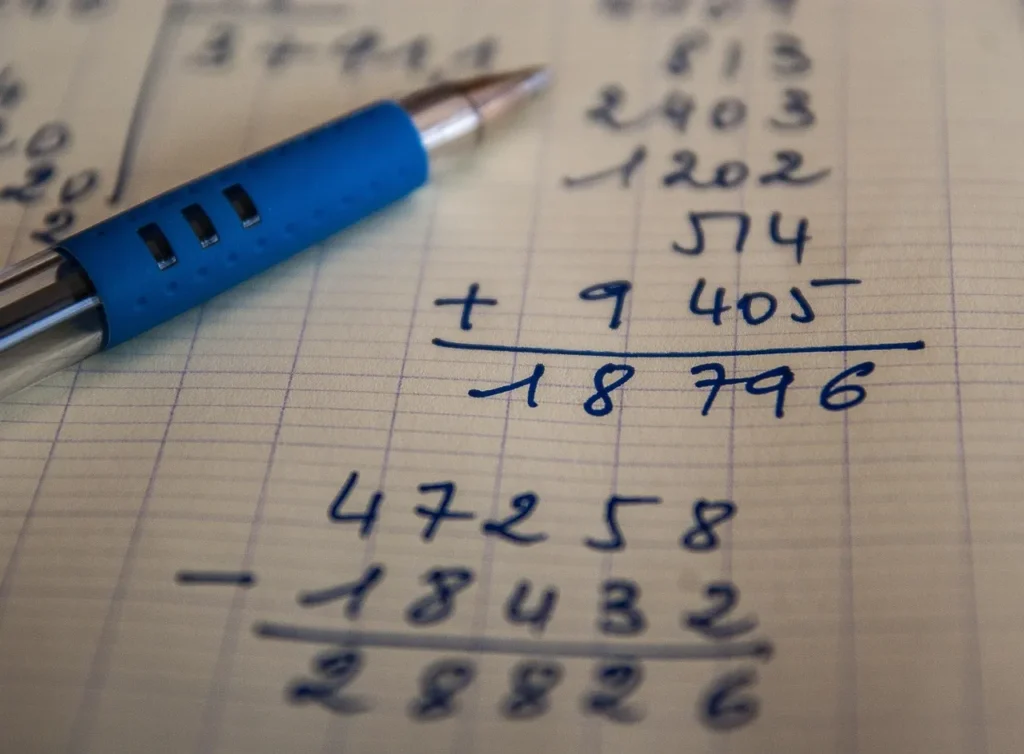 20
2
813
2403
1202
514
+ 9 405
18 796
47258
- 18432
28826